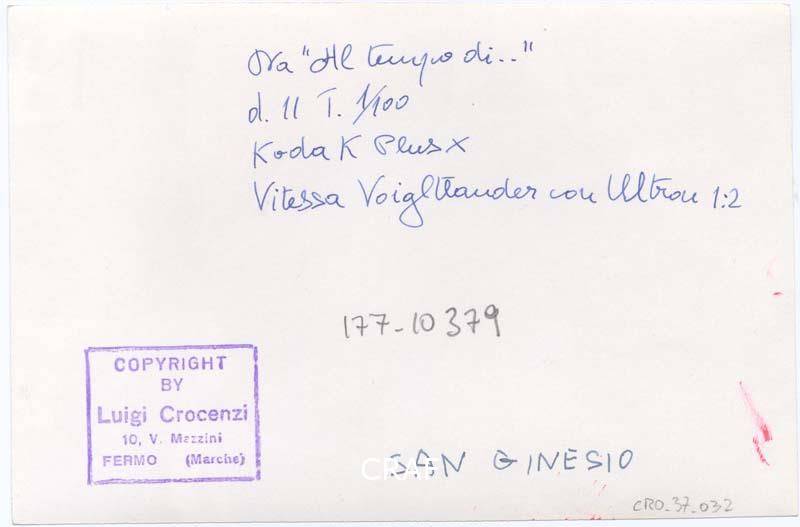 Da "Al tempo di.."
d. 11 T. 1/100
Kodak Plus X
Vitessa Voigltlander con Ultron 1:2
177-10379
COPYRIGHT
BY
Luigi Crocenzi
10, V. Mazzini
FERMO (Marche)
CRAF
SAN GINESIO
CRO_37_032